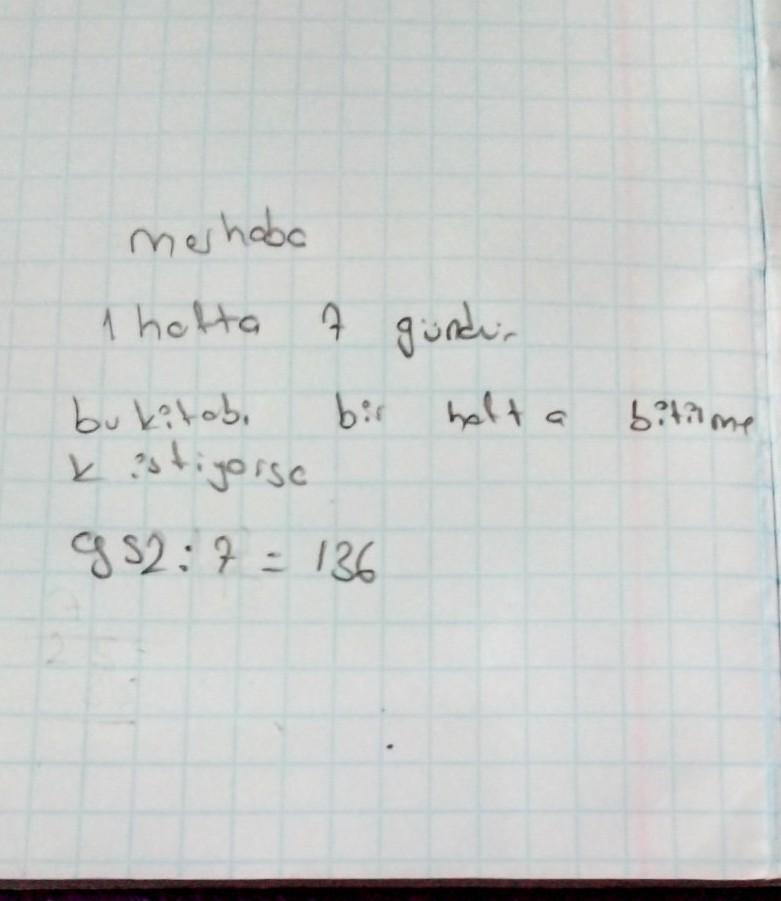 merhaba
1 hafta 7 gündür
bu kitabı bir hafta bitirme
k istiyorsa
952 : 7 = 136